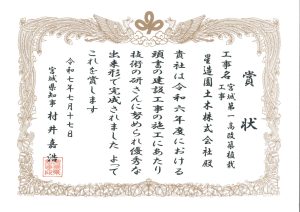 賞状
工事名 宮城第一高改築植栽
工事
星造園土木株式会社殿
貴社は令和六年度における
頭書の建設工事の施工にあたり
技術の研さんに努められ優秀な
出来形で完成されました よって
これを賞します
令和七年七月十七日
宮城県知事 村井嘉浩